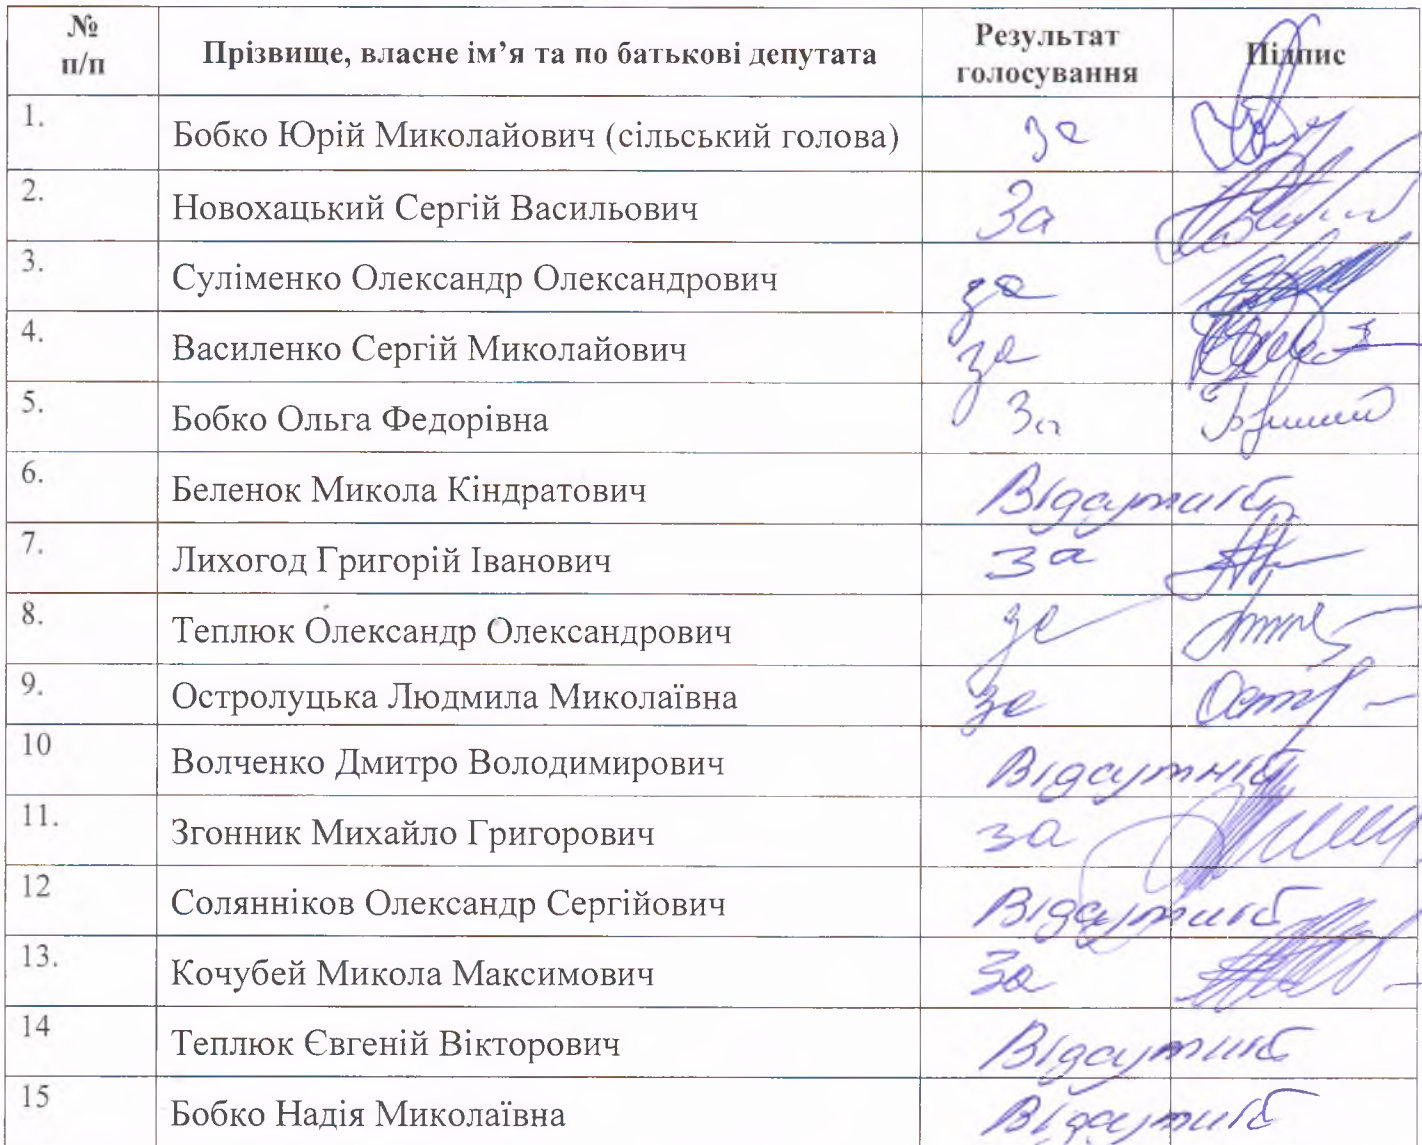 № п/п Прізвище, власне ім’я та по батькові депутата Результат голосування Підпис
1. Бобко Юрій Миколайович (сільський голова) за
2. Новохацький Сергій Васильович За
3. Суліменко Олександр Олександрович за
4. Василенко Сергій Миколайович за
5. Бобко Ольга Федорівна За
6. Беленок Микола Кіндратович Відсутній
7. Лихогод Григорій Іванович за
8. Теплюк Олександр Олександрович за
9. Остролуцька Людмила Миколаївна за
10 Волченко Дмитро Володимирович Відсутній
11. Згонник Михайло Григорович за
12 Солянніков Олександр Сергійович Відсутній
13. Кочубей Микола Максимович За
14 Теплюк Євгеній Вікторович Відсутній
15 Бобко Надія Миколаївна Відсутній